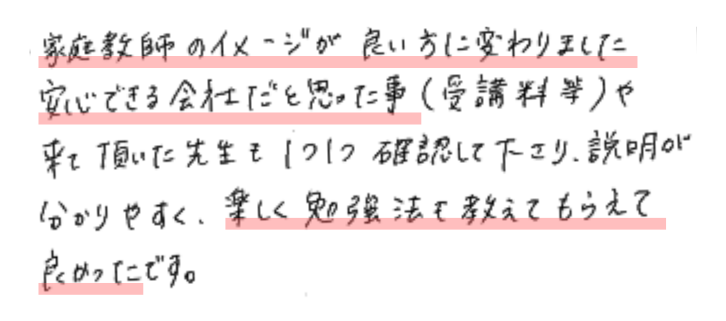 家庭教師のイメージが良い方に変わりました
安心できる会社だと思った事(受講料等)や
来て頂いた先生も1つ1つ確認して下さり、説明が
分かりやすく、楽しく勉強法を教えてもらえて
良かったです。